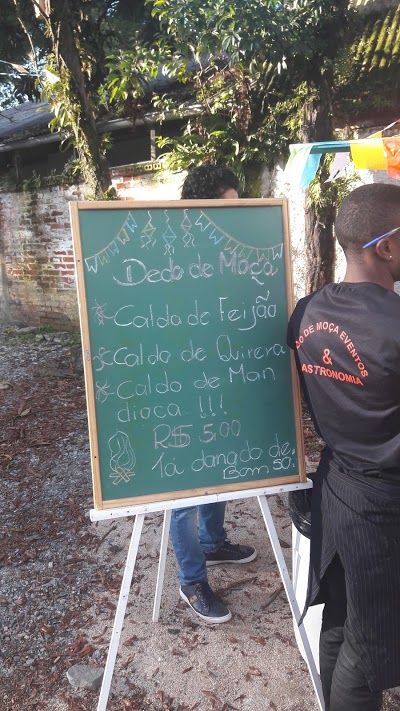 Dedo de Moça
Caldo de Feijão
Caldo de Quirera
Caldo de Man
dioca !!!
R$ 5.00
Tá danado de
Bom sô!
DO DE MOÇA EVENTOS
&
ASTRONOMIA